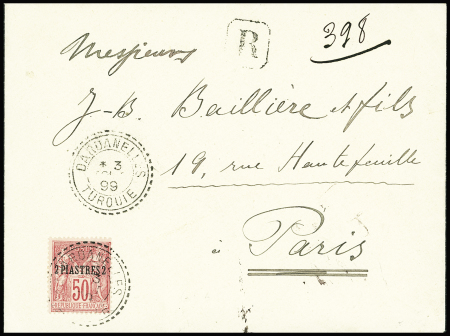 R
398
Messieurs
J-B. Baillière et fils
19, rue Hautefeuille
à Paris
DARDANELLES
* 3
99
TURQUIE
2 PIASTRES 2
50
REPUBLIQUE FRANCAISE